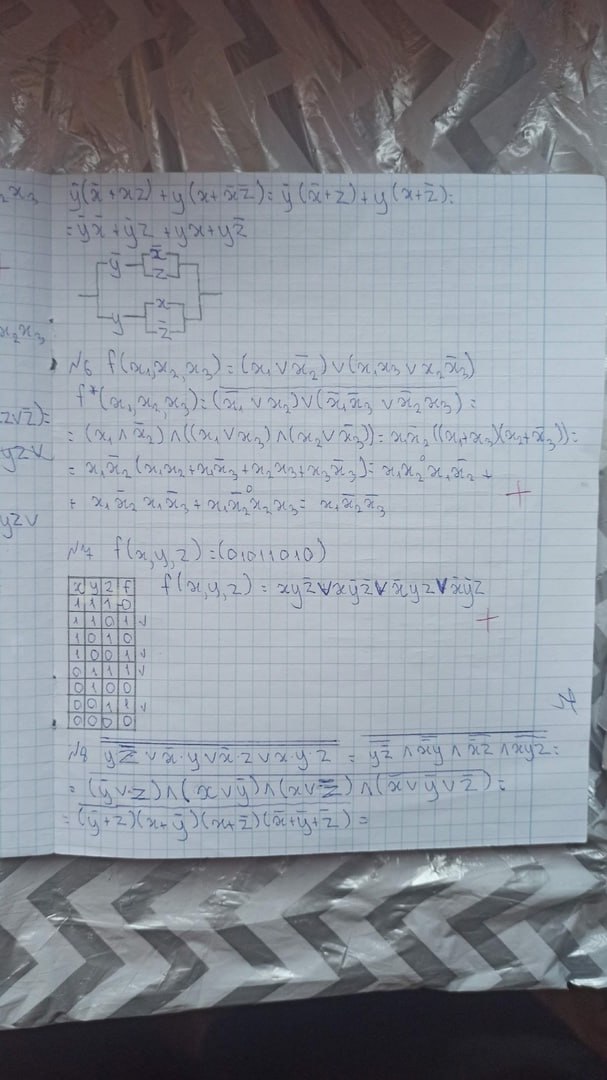 ȳ(x̄+xz)+y(x+x̄z̄)= ȳ(x̄+z)+y(x+z̄)=
=ȳx̄+ȳz+yx+yz̄
ȳ x̄ z
y x z̄
№6 f(x₁,x₂,x₃)=(x₁∨x̄₂)∨(x₁x₃∨x₂x̄₃)
f*(x₁,x₂,x₃)=(x̄₁∨x₂)∨(x̄₁x̄₃∨x̄₂x₃)=
=(x₁∧x̄₂)∧((x₁∨x₃)∧(x₂∨x̄₃))=x₁x̄₂((x₁+x₃)(x₂+x̄₃))=
=x₁x̄₂(x₁x₂+x₁x̄₃+x₂x₃+x₃x̄₃)=x₁x₂⁰x₁x̄₂+
+x₁x̄₂x₁x̄₃+x₁x̄₂⁰x₂x₃=x₁x̄₂x̄₃
№7 f(x,y,z)=(01011010)
x y z f
1 1 1 0
1 1 0 1 ✓
1 0 1 0
1 0 0 1 ✓
0 1 1 1 ✓
0 1 0 0
0 0 1 1 ✓
0 0 0 0
f(x,y,z)=xyz̄∨xȳz̄∨x̄yz∨x̄ȳz
№8 yz̄∨x̄·y∨x̄·z∨x·y·z = yz̄∧x̄y∧x̄z∧xyz=
=(ȳ∨z)∧(x∨ȳ)∧(x∨z̄)∧(x̄∨ȳ∨z̄)=
=(ȳ+z)(x+ȳ)(x+z̄)(x̄+ȳ+z̄)=